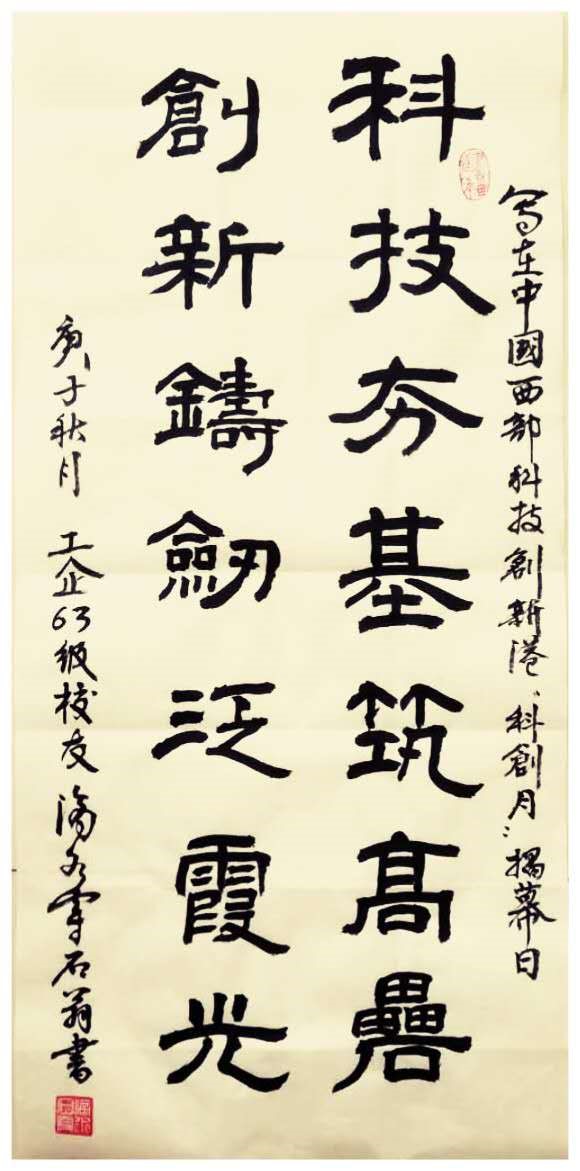 写在中國西部科技創新港“科創月”揭幕日
科技夯基筑高礨
創新鑄劒泛霞光
庚子秋月 工企63级校友 滴水穿石翁書